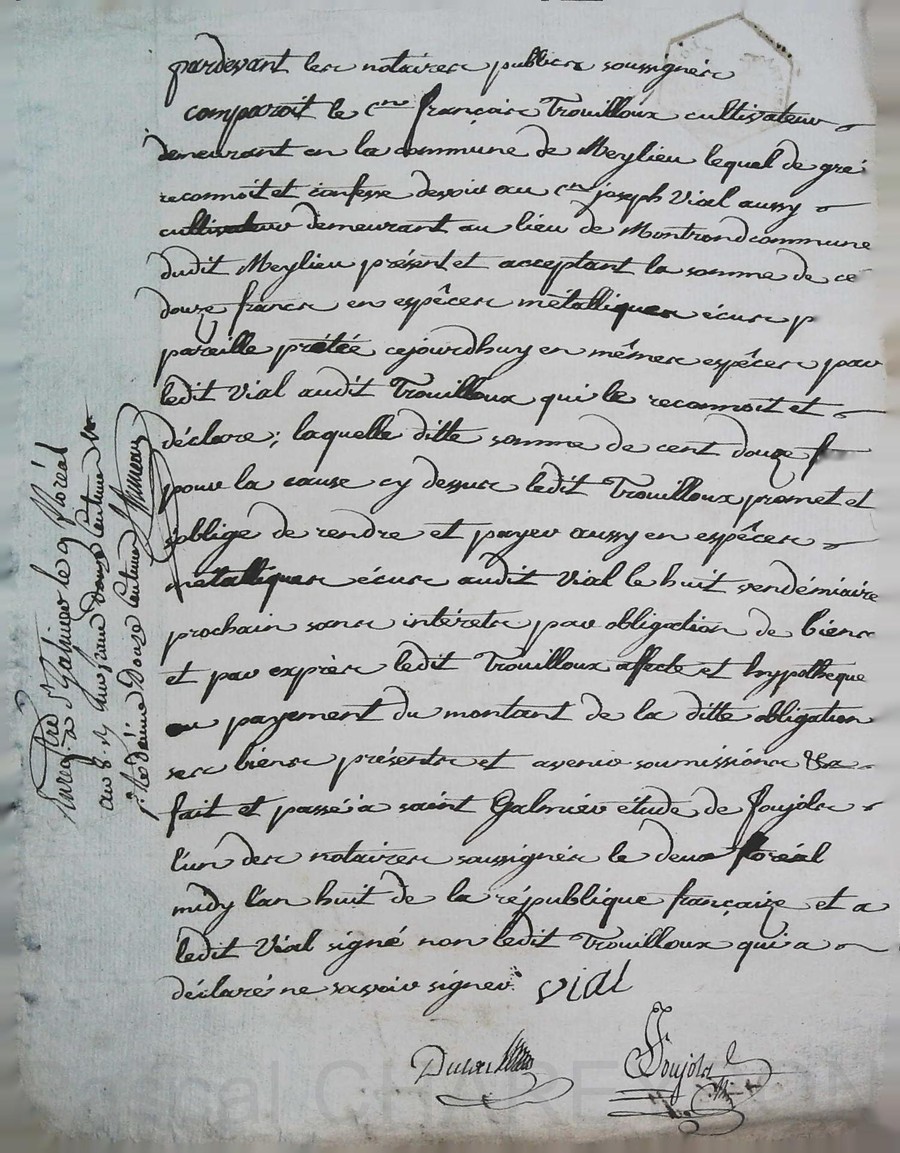 pardevant les notaires publics soussignés
comparoit le Cen françois Trouilloux cultivateur
demeurant en la commune de Meylieu lequel de gré
reconnoit et confesse devoir au Cen joseph Vial aussy
cultivateur demeurant au lieu de Montrond commune
dudit Meylieu présent et acceptant la somme de ce
douze francs en espêces métalliques écus p
pareille prêtée cejourdhuy en mêmes espêces par
ledit Vial audit Trouilloux qui le reconnoit et
déclare; laquelle ditte somme de cent douze f
pour la cause cy dessus ledit Trouilloux promet et
soblige de rendre et payer aussy en espêces
métalliques écus audit Vial le huit vendémiaire
prochain sans intérets par obligation de biens
et par exprès ledit Trouilloux affecte et hypothèque
au payement du montant de la ditte obligation
ses biens présents et avenir soumissions &a
fait et passé à saint Galmier étude de Foujols
l'un des notaires soussignés le deux floréal
midy l'an huit de la république françaize et a
ledit Vial signé non ledit Trouilloux qui a
déclaré ne savoir signer. vial
Foujols
Enregistré à St galmier le 9 floréal
an 8. R un franc douze centimes
douze centimes